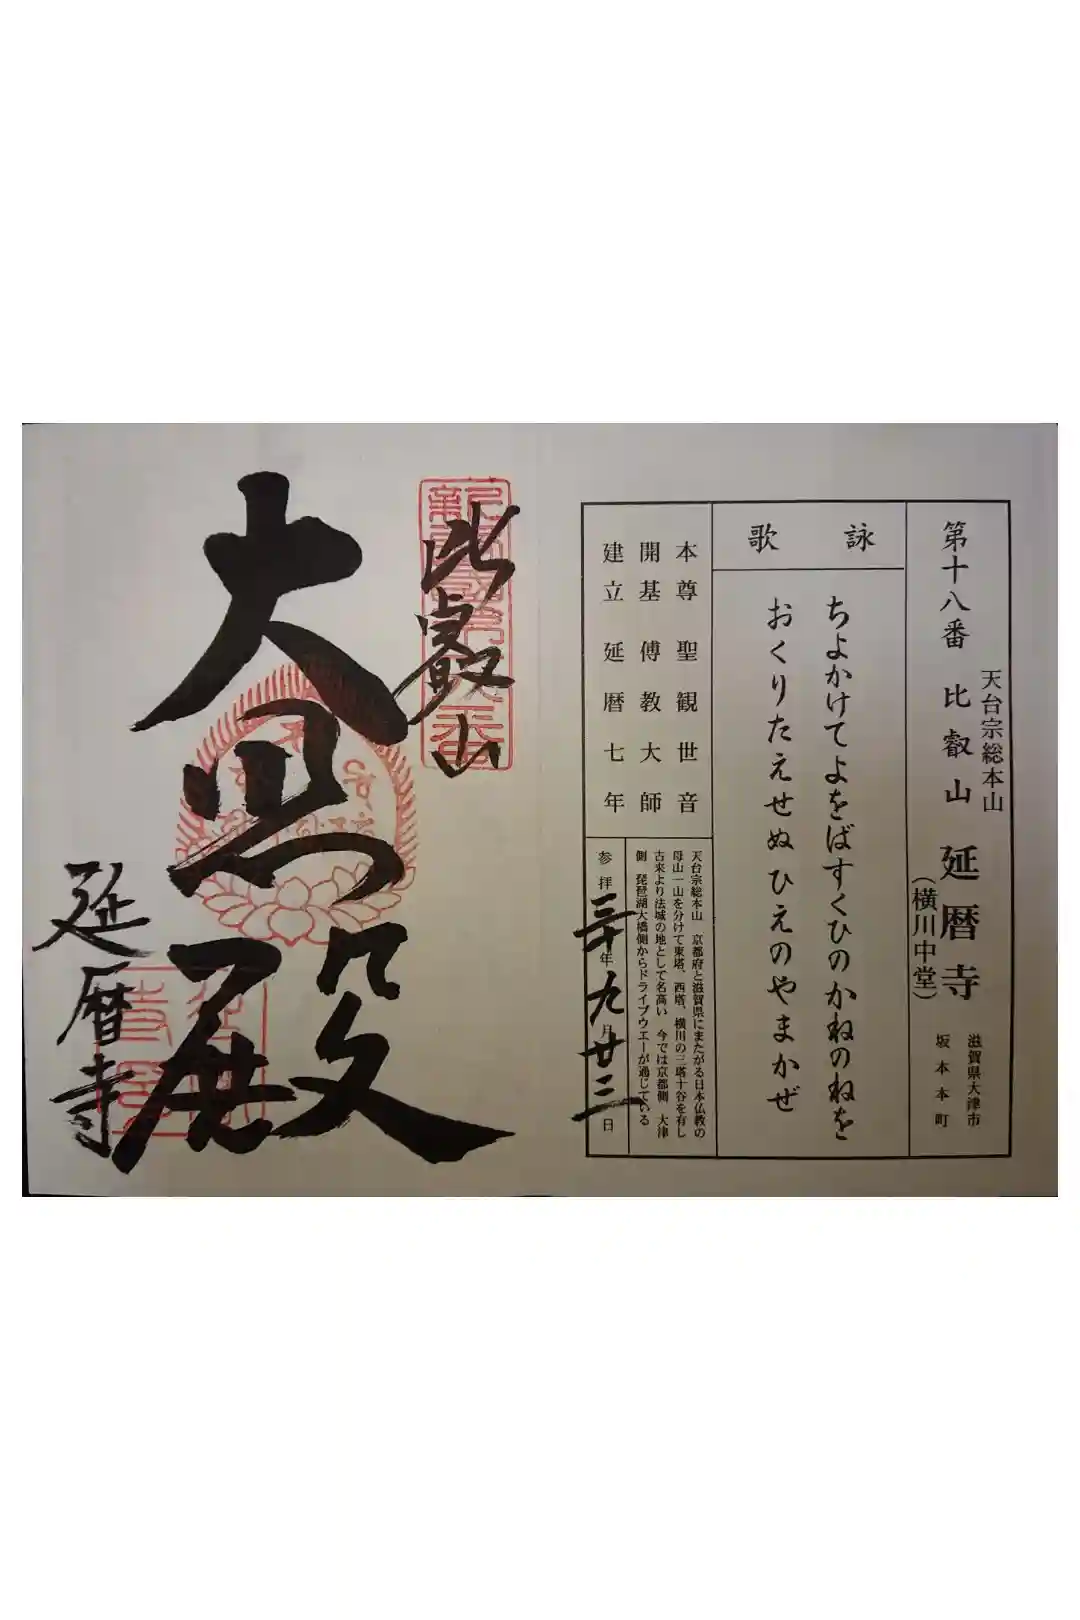 第十八番 比叡山 延暦寺
天台宗総本山
(横川中堂)
滋賀県大津市
坂本本町
詠歌
ちよかけてよをばすくひのかねのねを
おくりたえせぬひえのやまかぜ
本尊 聖観世音
開基 傳教大師
建立 延暦七年
天台宗総本山 京都府と滋賀県にまたがる日本仏教の
母山一山を分けて東塔、西塔、横川の三塔十谷を有し
古来より法城の地として名高い 今では京都側 大津
側 琵琶湖大橋側からドライブウエーが通じている
参拝三十年九月廿三日
比叡山
大黒殿
延暦寺